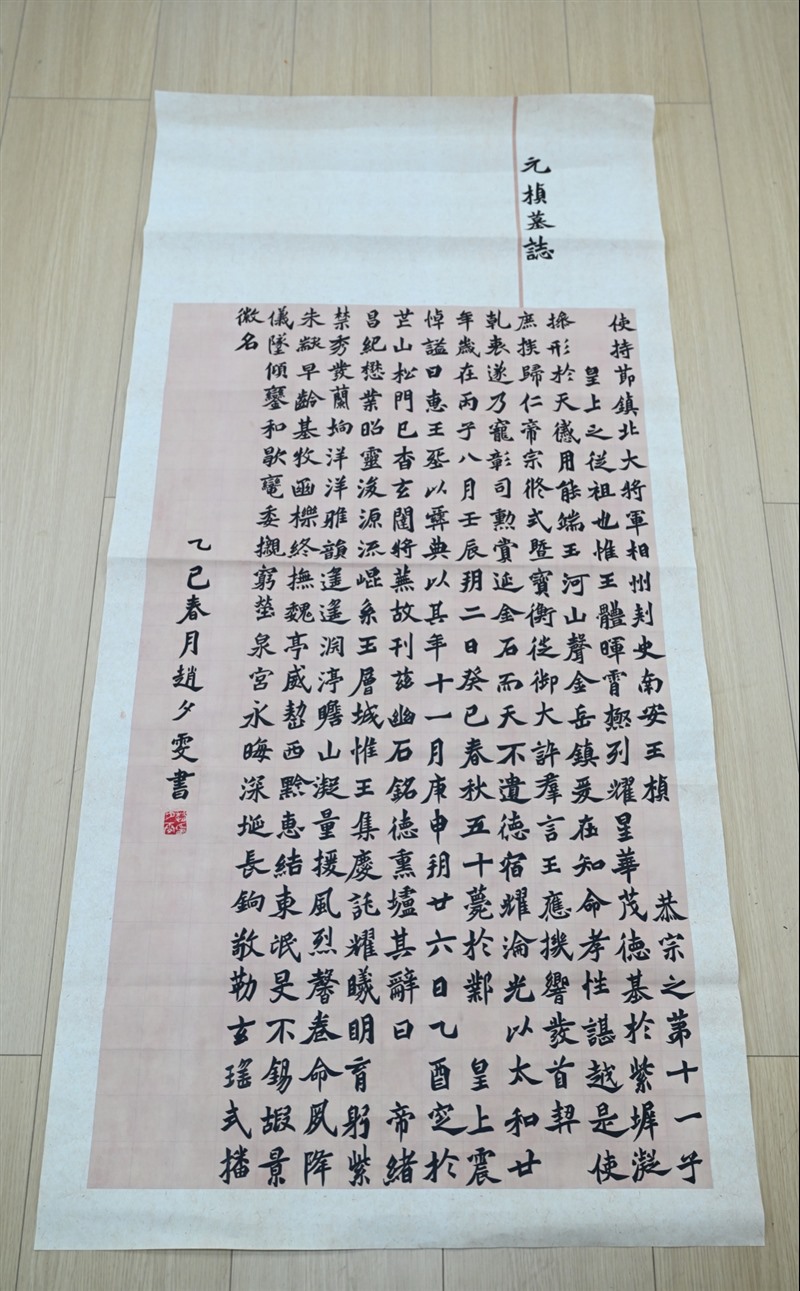 元楨墓誌
使持節鎮北大將軍相州刾史南安王楨 恭宗之第十一子
皇上之從祖也惟王體暉霄極列耀星華茂德基於紫墀凝
操形於天感用能端玉河山聲金岳鎮爰在知命孝性諶越是使
庶族歸仁帝宗攸式暨寶衡徙御大許羣言王應機響發首契
乹衷遂乃寵彰司勳賞延金石而天不遺德宿耀淪光以太和廿
年歲在丙子八月壬辰玥二日癸巳春秋五十薨於鄴 皇上震
悼謚曰惠王葬以彝典以其年十一月庚申朔廿六日乙酉窆於
芒山松門已杳玄闥將蕪故刊茲幽石銘德熏壚其辭曰 帝緒
昌紀懋業昭靈浚源流崐系玉層城惟王集慶託耀曦明育躬紫
禁秀發蘭坰洋洋雅韻遙遙淵渟瞻山凝量援風烈馨卷命夙降
朱紱早齡基牧函櫟終撫魏亭威整西黔惠結東氓旻不錫嘏景
儀墜傾鑾和歇委櫬窮塋泉宮永晦深埏長鈎敬勒玄瑤式播
徽名
乙巳春月趙夕雯書